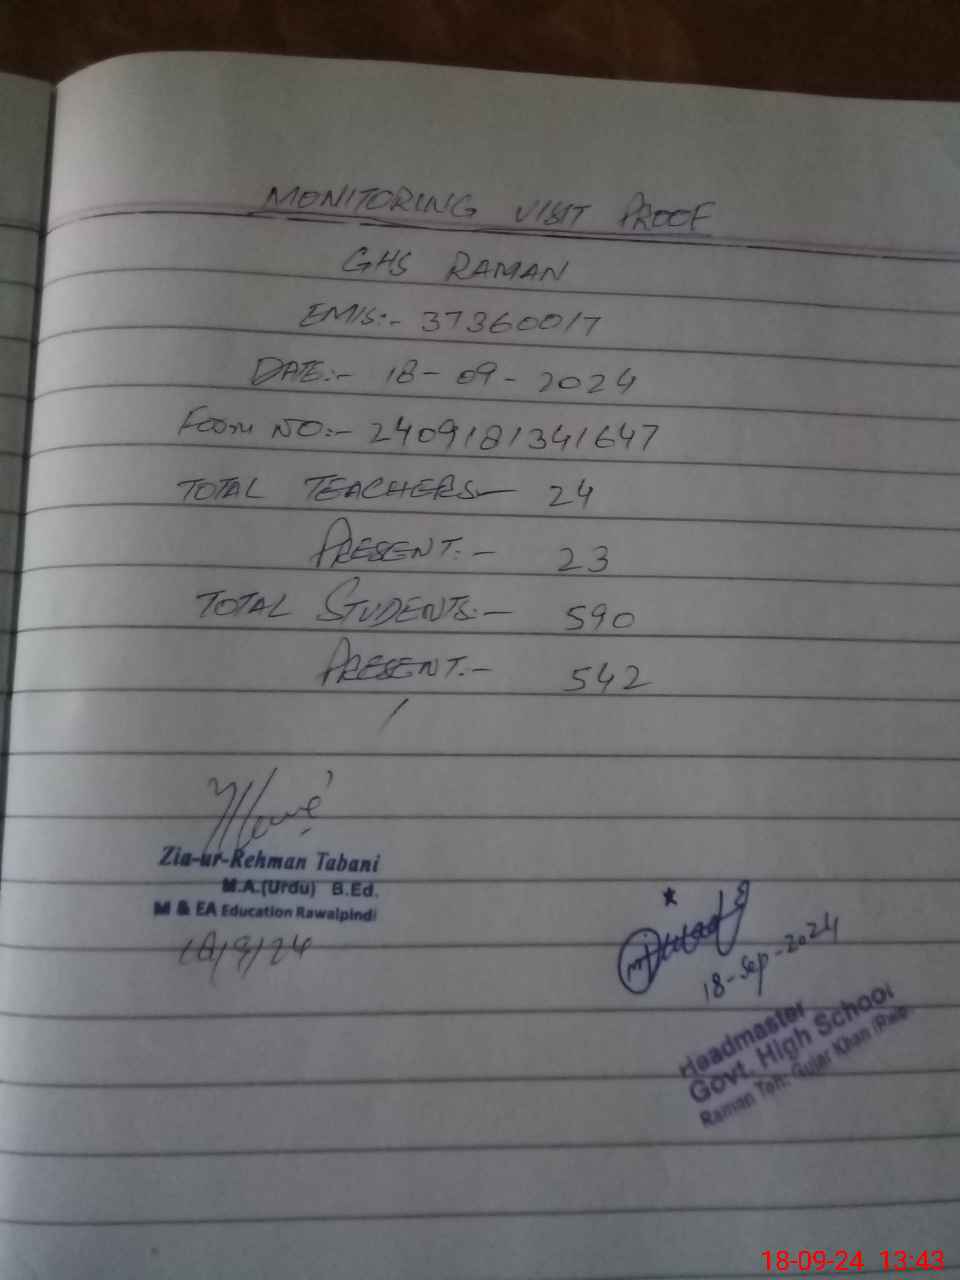 MONITORING VISIT PROOF
GHS RAMAN
EMIS:- 37360017
DATE:- 18-09-2024
FORM NO:- 2409181341647
TOTAL TEACHERS:- 24
PRESENT:- 23
TOTAL STUDENTS:- 590
PRESENT:- 542
Zia-ur-Rehman Tabani
M.A.(Urdu) B.Ed.
M & EA Education Rawalpindi
18/9/24
18-Sep-2024
Headmaster
Govt. High School
Raman Teh: Gujar Khan
18-09-24 13:43